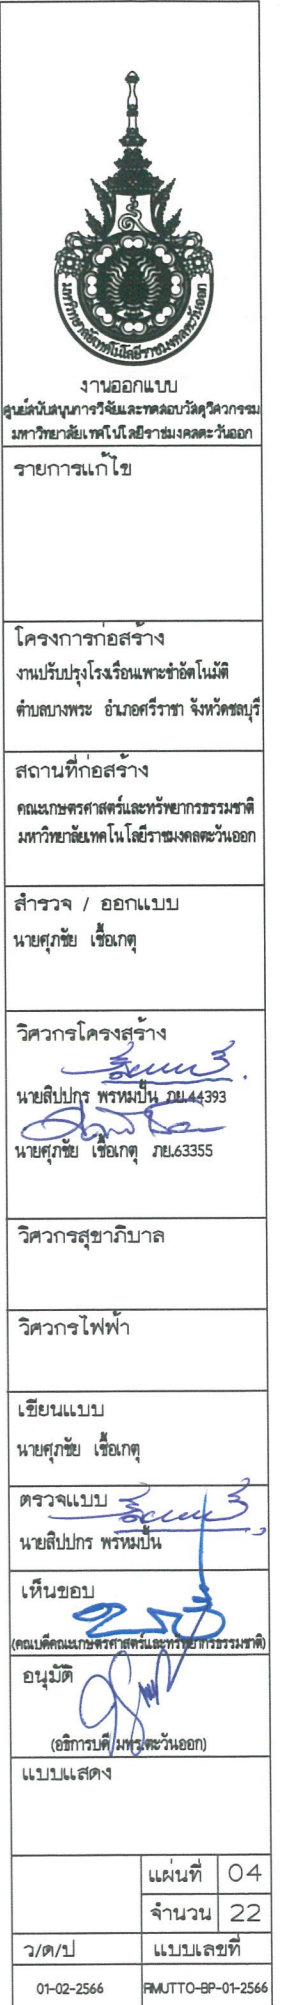 มหาวิทยาลัยเทคโนโลยีราชมงคลตะวันออก
งานออกแบบ
ศูนย์สนับสนุนการวิจัยและทดสอบวัสดุวิศวกรรม
มหาวิทยาลัยเทคโนโลยีราชมงคลตะวันออก
รายการแก้ไข
โครงการก่อสร้าง
งานปรับปรุงโรงเรือนเพาะชำอัตโนมัติ
ตำบลบางพระ อำเภอศรีราชา จังหวัดชลบุรี
สถานที่ก่อสร้าง
คณะเกษตรศาสตร์และทรัพยากรธรรมชาติ
มหาวิทยาลัยเทคโนโลยีราชมงคลตะวันออก
สำรวจ / ออกแบบ
นายศุภชัย เชื้อเกตุ
วิศวกรโครงสร้าง
นายสิปปกร พรหมปั้น ภย.44393
นายศุภชัย เชื้อเกตุ ภย.63355
วิศวกรสุขาภิบาล
วิศวกรไฟฟ้า
เขียนแบบ
นายศุภชัย เชื้อเกตุ
ตรวจแบบ
นายสิปปกร พรหมปั้น
เห็นชอบ
(คณบดีคณะเกษตรศาสตร์และทรัพยากรธรรมชาติ)
อนุมัติ
(อธิการบดี มทร.ตะวันออก)
แบบแสดง
แผ่นที่ 04
จำนวน 22
ว/ด/ป แบบเลขที่
01-02-2566 RMUTTO-BP-01-2566